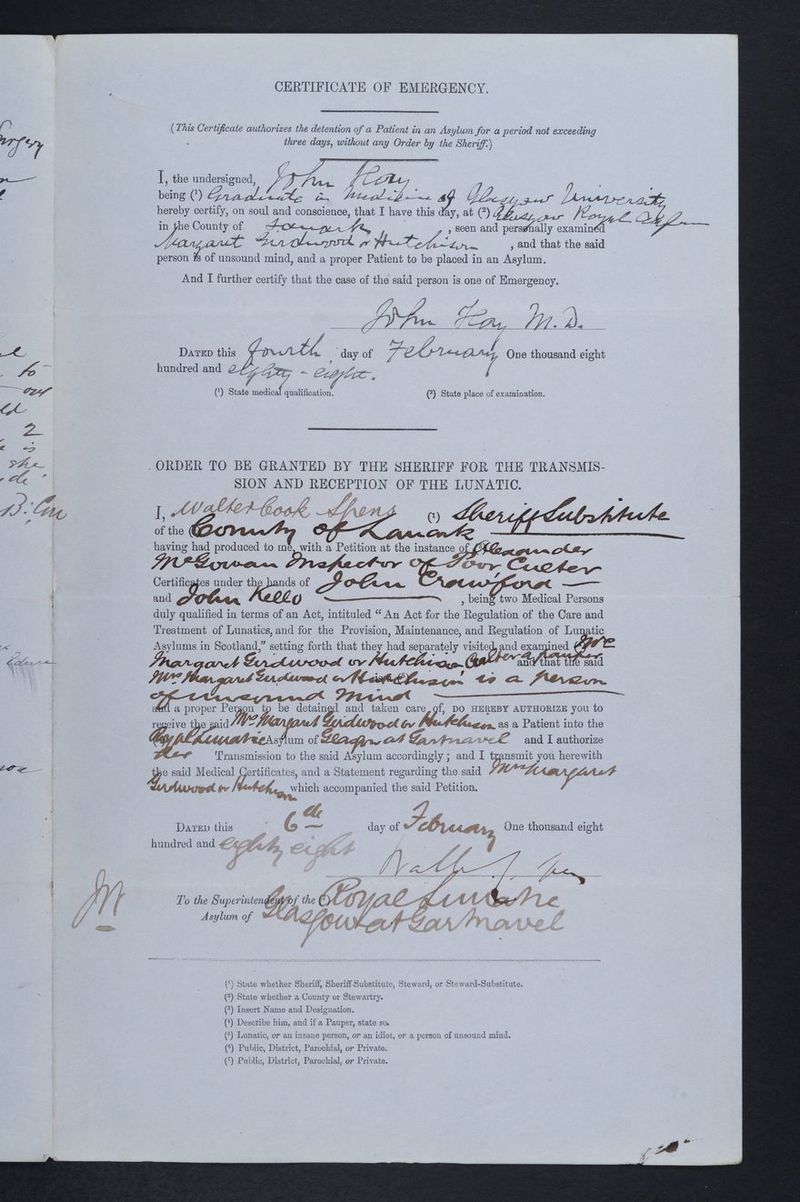 CERTIFICATE OF EMERGENCY.
(This Certificate authorizes the detention of a Patient in an Asylum for a period not exceeding
three days, without any Order by the Sheriff.)
I, the undersigned, John Hay
being (¹) Graduate in Medicine of Glasgow University
hereby certify, on soul and conscience, that I have this day, at (²) Glasgow Royal Asylum
in the County of Lanark, seen and personally examined
Margaret Girdwood or Hutchison, and that the said
person is of unsound mind, and a proper Patient to be placed in an Asylum.
And I further certify that the case of the said person is one of Emergency.
John Hay M.D.
DATED this fourth day of February One thousand eight
hundred and eighty-eight.
(¹) State medical qualification. (²) State place of examination.
ORDER TO BE GRANTED BY THE SHERIFF FOR THE TRANSMIS-
SION AND RECEPTION OF THE LUNATIC.
I, Walter Cook Spens (¹) Sheriff Substitute
of the County of Lanark
having had produced to me, with a Petition at the instance of Alexander
McGowan Inspector of Poor Culter
Certificates under the hands of John Crawford
and John Kello, being two Medical Persons
duly qualified in terms of an Act, intituled "An Act for the Regulation of the Care and
Treatment of Lunatics, and for the Provision, Maintenance, and Regulation of Lunatic
Asylums in Scotland," setting forth that they had separately visited and examined Mrs
Margaret Girdwood or Hutchison Culter a pauper and that the said
Mrs Margaret Girdwood or Hutchison is a person
of unsound mind
and a proper Person to be detained and taken care of, DO HEREBY AUTHORIZE you to
receive the said Mrs Margaret Girdwood or Hutchison as a Patient into the
Royal Lunatic Asylum of Glasgow at Gartnavel and I authorize
her Transmission to the said Asylum accordingly; and I transmit you herewith
the said Medical Certificates, and a Statement regarding the said Mrs Margaret
Girdwood or Hutchison which accompanied the said Petition.
DATED this 6th day of February One thousand eight
hundred and eighty eight
To the Superintendent of the (⁷) Royal Lunatic
Asylum of Glasgow at Gartnavel
(¹) State whether Sheriff, Sheriff-Substitute, Steward, or Steward-Substitute.
(²) State whether a County or Stewartry.
(³) Insert Name and Designation.
(⁴) Describe him, and if a Pauper, state so.
(⁵) Lunatic, or an insane person, or an idiot, or a person of unsound mind.
(⁶) Public, District, Parochial, or Private.
(⁷) Public, District, Parochial, or Private.